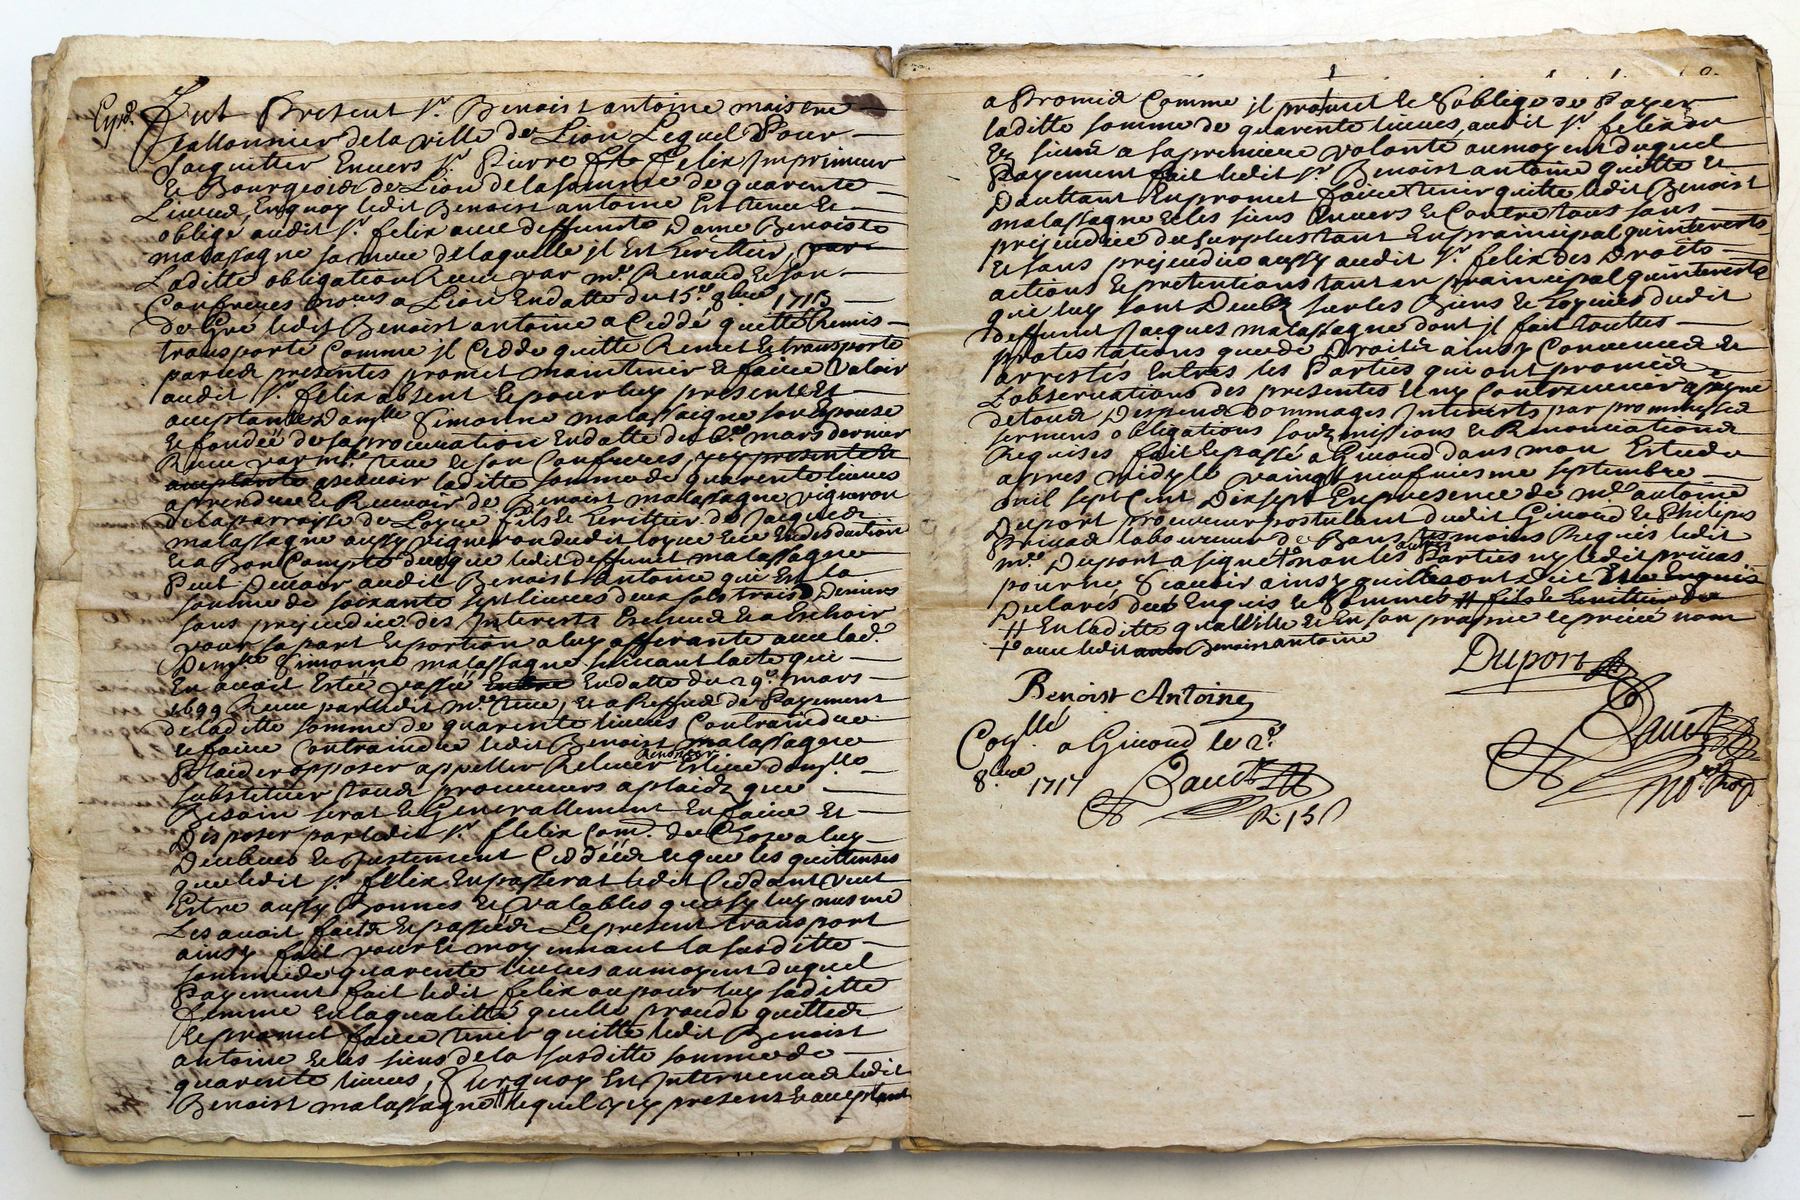 Expé.
Fut Present Sr. Benoist antoine maistre
Tallonnier de la ville de Lion Lequel Pour
Sacquitter Envers Sr. Pierre Felix Imprimeur
& Bourgeois de Lion de la somme de quarente
Livres, En quoy ledit Benoist antoine Est tenu Et
obligé audit Sr. felix avec deffuncte Dame Benoiste
malassagne sa mere de laquelle jl Est heritier, par
Laditte obligation Reçue par me. Renaud & son
Confreres a Lion En datte du 15e. 8bre 1715
de Gré ledit Benoist antoine a Ceddé quitté Remis
transporté Comme jl Cedde quitte Remet & transporte
par ces presentes promet maintenir & faire Valoir
audit Sr. felix absent & pour luy presente Et
acceptante Damlle Simonne malassagne son Epouse
& fondée de sa procuration En datte du mars dernier
Reçue par me. & son Confreres, y cy presente &
acceptante ascavoir laditte somme de quarente livres
a prendre & Recevoir de Benoist malassagne vigneron
de la parroisse de Loyre fils & heritier de Jacques
malassagne aussy vigneron dudit loyre & En desduction
& a Bon Compte de ce que ledit deffunt malassagne
Peut Devoir audit Benoist antoine qui Est la
somme de soixante sept livres deux sols trois Deniers
sans prejudice des Interests Escheus & a Escheoir
pour sa part & portion a luy afferante avec lad.
Demlle Simonne malassagne suivant lacte qui
En avoit Esté passé Entre En datte du 29e. mars
1699 Reçue par ledit me., & a Reffus de Payement
de laditte somme de quarente livres Contraindre
& faire Contraindre ledit Benoist malassagne
Plaider opposer appeller Relever renoncer Eslire domlle
substituer tous procureurs a plaids que
Besoin serat & Generallement En faire Et
Disposer par ledit Sr. felix Com. de Chose a luy
Deubues & justement Ceddées & que les quittenses
que ledit Sr felix En passerat ledit Ceddant veut
Estre aussy Bonnes & valables que sy luy mesme
Les avoit faites & passées Le present transport
ainsy fait pour & moyennant la susditte
somme de quarente livres au moyent duquel
Payement fait ledit felix ou pour luy saditte
femme En la qualitté quelle procede quitte
& promet faire tenir quitte ledit Benoist
antoine & les siens de la susditte somme de
quarente livres, Surquoy Est Intervenu ledit
Benoist malassagne # lequel y cy present & acceptant
a Promis Comme jl promet & Soblige de Payer
laditte somme de quarente livres, audit Sr. felix ou
Es siens a sa premiere volonté au moyent duquel
Payement fait ledit Sr Benoist antoine quitte &
Dauttant En promet faire tenir quitte ledit Benoist
malassagne & les siens Envers & Contre tous sans
prejudice du surplus tant En principal quinterests
& sans prejudice aussy audit Sr. felix des Droits
actions & pretentions tant en principal quinterests
que luy sont Deubz sur les Biens & hoyries dudit
deffunt Jacques malassagne dont jl fait touttes
protestations que de Droit & ainsy Convenu &
arrestés Entres les Parties qui ont promis
Lobservations des presentes & ny Contrevenir a peyne
de tous Despens dommages Interests par promesses
sermens obligations soubzmissions & Renonciations
Requises fait & passé a Givord dans mon Estude
apres midy le vaingt neufviesme septembre
mil sept Cent Dixsept En presence de me. antoine
Duport procureur postulant dudit Givord & Philipes
Privas laboureur de Bans tesmoins Requis ledit
me. Duport a signé to non les autres Parties ny ledit privas
pour ne Scavoir ainsy quills ont Dit Et Enquis
Declarés deub Enquis & Sommés # fils & heritier du
# En laditte quallitté & En son propre & privé nom
to avec ledit Benoist antoine
Duport
Benoist Antoine
Conllé a Givord le 2e
8bre 1717
R. 15s